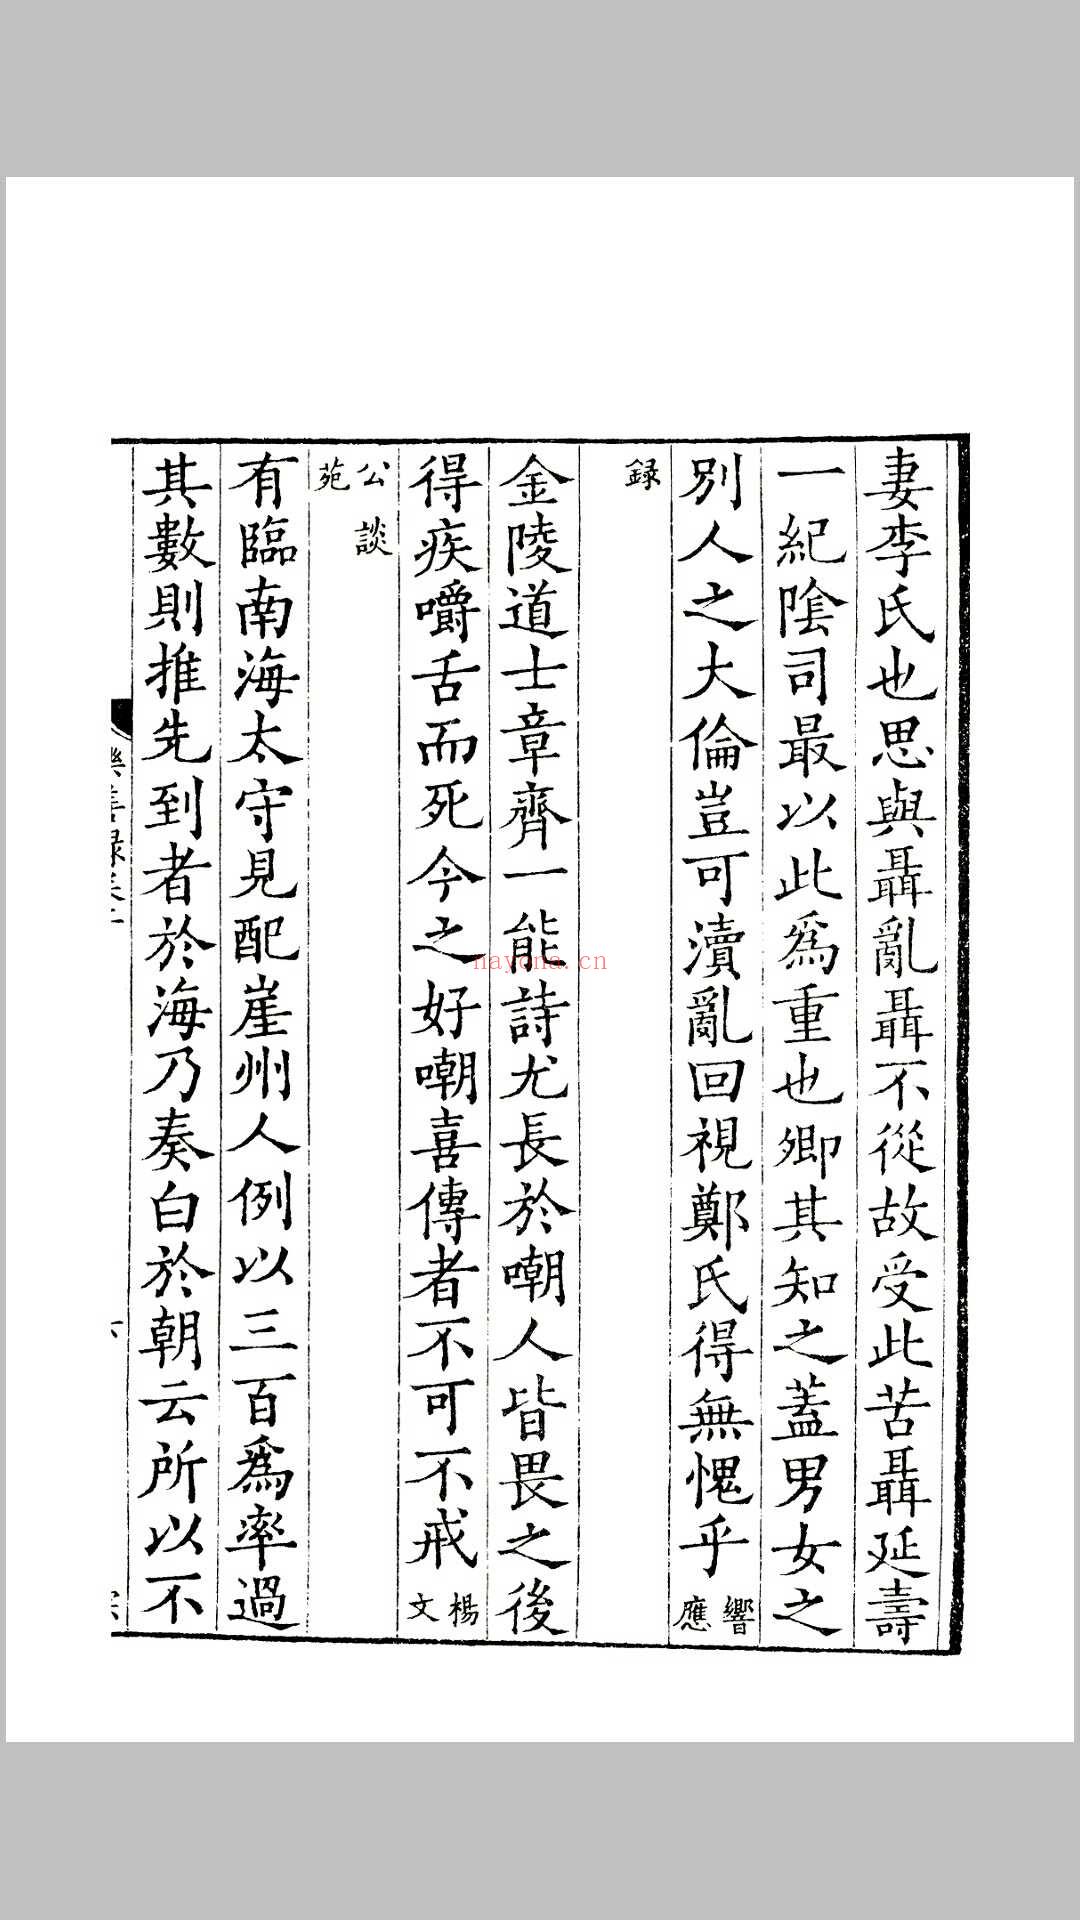 妻李氏也思與聶亂聶不從故受此苦聶延壽
一紀陰司最以此為重也卿其知之蓋男女之
別人之大倫豈可瀆亂回視鄭氏得無愧乎 響應
録
金陵道士章齊一能詩尤長於嘲人皆畏之後
得疾嚼舌而死今之好嘲喜傳者不可不戒 楊文
公談苑
有臨南海太守見配崖州人例以三百為率過
其數則推先到者於海乃奏白於朝云所以不
hayona.cn